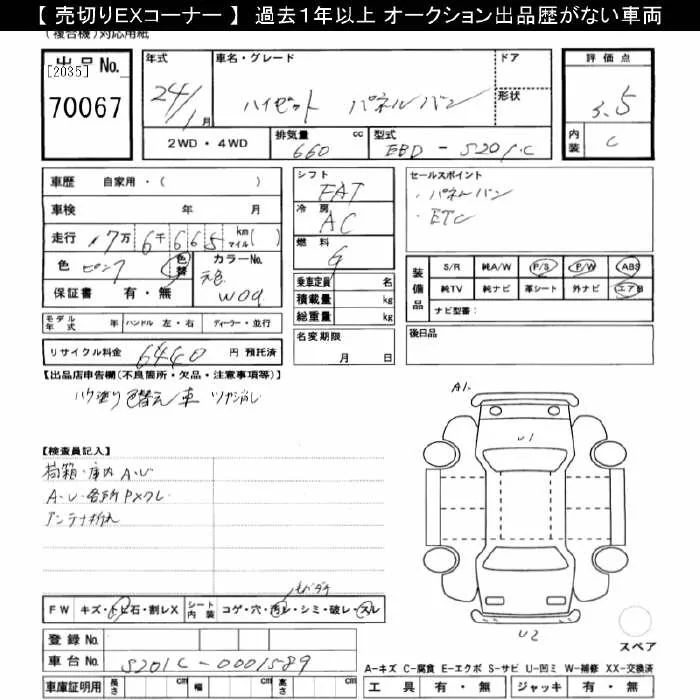 【 売切りEXコーナー 】 過去１年以上 オークション出品歴がない車両
(複合機)対応用紙
出品No.
[2035]
70067
年式
24/1月
車名・グレード
ハイゼット パネルバン
ドア
形状
評価点
3.5
内装
C
2WD・4WD
排気量 660 cc
型式 EBD-S201C
車歴 自家用・( )
車検 年 月
走行 17万6千665 km マイル( )
色 ピンク 色替
カラーNo. 元色 W09
保証書 有・無
シフト
FAT
冷房
AC
燃料
G
乗車定員 名
積載量 kg
総重量 kg
セールスポイント
・パネルバン
・ETC
装備品
S/R 純A/W P/S P/W ABS
純TV 純ナビ 革シート 外ナビ エアB
ナビ型番:
モデル年式 年 ハンドル 左・右 ディーラー・並行
リサイクル料金 6440 円 預託済
名変期限
月 日
後日品
【出品店申告欄(不良箇所・欠品・注意事項等)】
ハケ塗り色替え車
【検査員記入】
荷箱・庫内 A・U
A・U・各所PXクレ
アンテナ折れ
A1
U1
U2
FW キズ・トビ石・割レX
シート内装 コゲ・穴・汚レ・シミ・破レ・スレ
登録No.
車台No. S201C-0001589
スペア
A-キズ C-腐食 E-エクボ S-サビ U-凹ミ W-補修 XX-交換済
車庫証明用 長さ cm 幅 cm 高さ cm
工具 有・無 ジャッキ 有・無